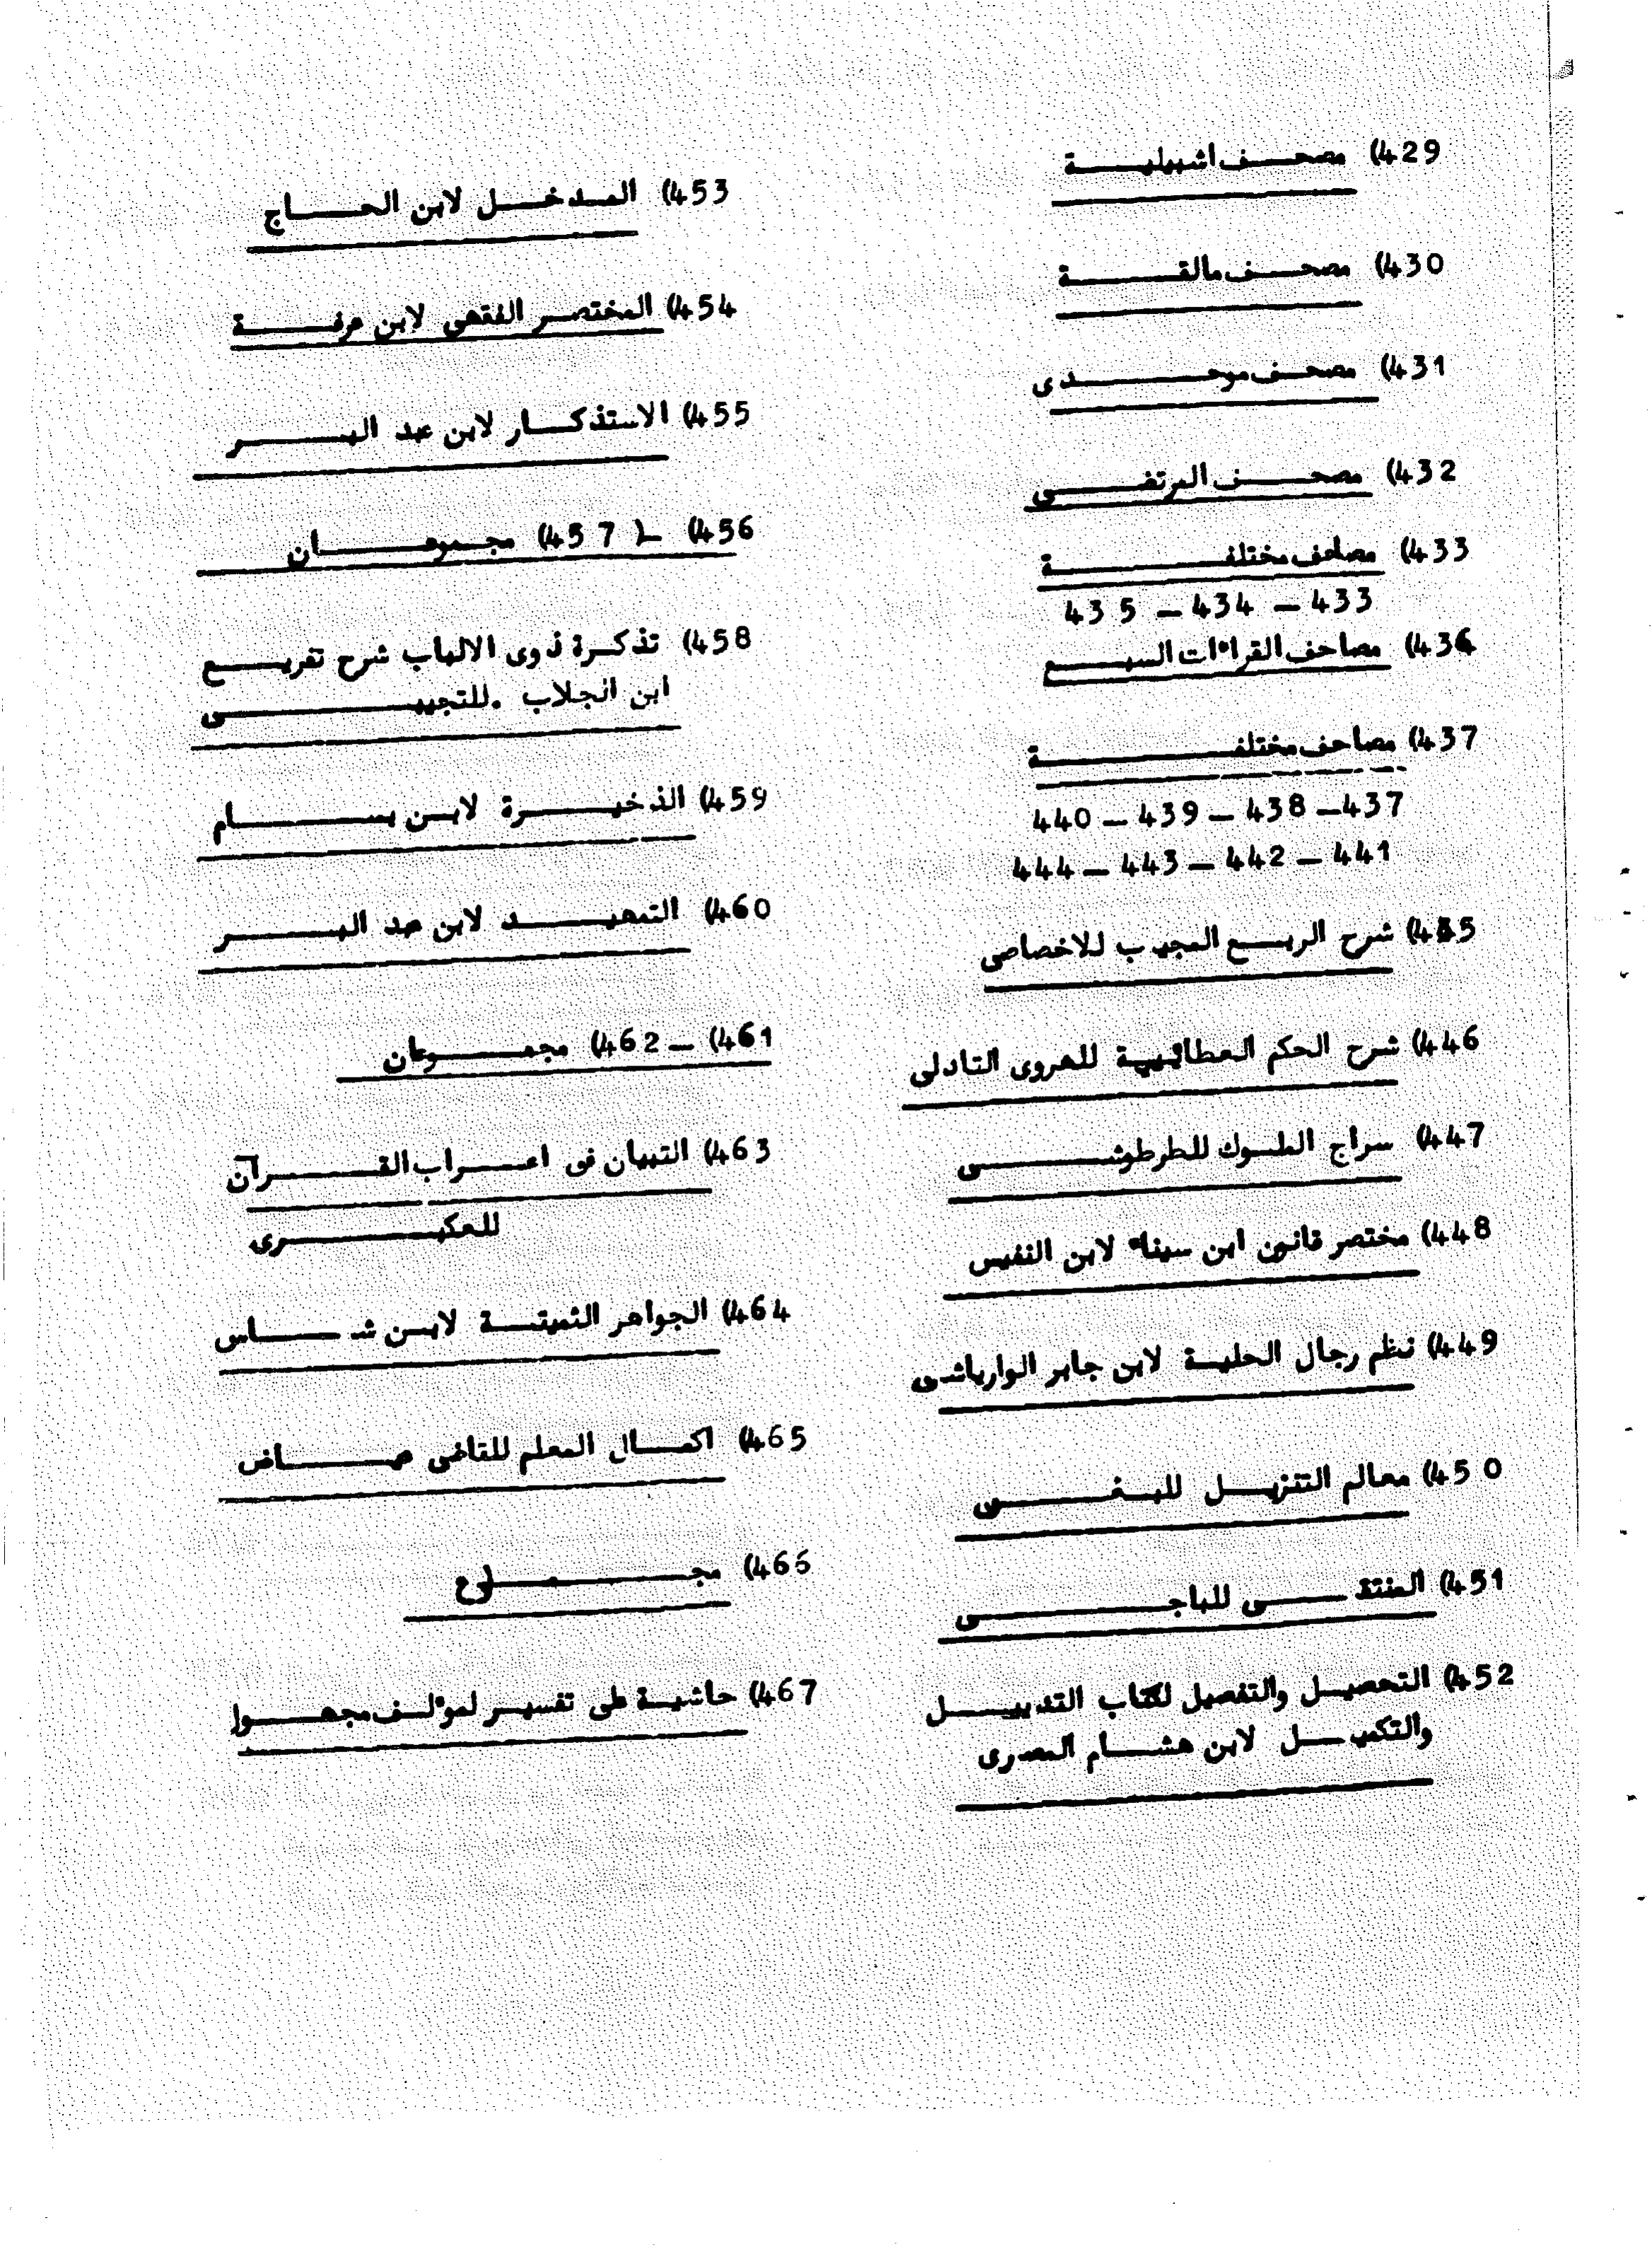 429) مصحف اشبيلية
430) مصحف مالقة
431) مصحف موحدى
432) مصحف المرتضى
433) مصاحف مختلفة
433 – 434 – 435
436) مصاحف القراءات السبع
437) مصاحف مختلفة
437 – 438 – 439 – 440
441 – 442 – 443 – 444
445) شرح الربع المجيب للاخصاصى
446) شرح الحكم العطائية للهروى التادلى
447) سراج الملوك للطرطوشى
448) مختصر قانون ابن سيناء لابن النفيس
449) نظم رجال الحلية لابن جابر الوارياشى
450) معالم التنزيل للبغوى
451) المنتقى للباجى
452) التحصيل والتفصيل لكتاب التذييل
والتكميل لابن هشام المصرى
453) المدخل لابن الحاج
454) المختصر الفقهى لابن عرفة
455) الاستذكار لابن عبد البر
456) – 457) مجموعان
458) تذكرة ذوى الالباب شرح تفريع
ابن الجلاب . للتجيبى
459) الذخيرة لابن بسام
460) التمهيد لابن عبد البر
461) – 462) مجموعان
463) التبيان فى اعراب القرآن
للعكبرى
464) الجواهر الثمينة لابن شاس
465) اكمال المعلم للقاضى عياض
466) مجموع
467) حاشية على تفسير لمؤلف مجهول